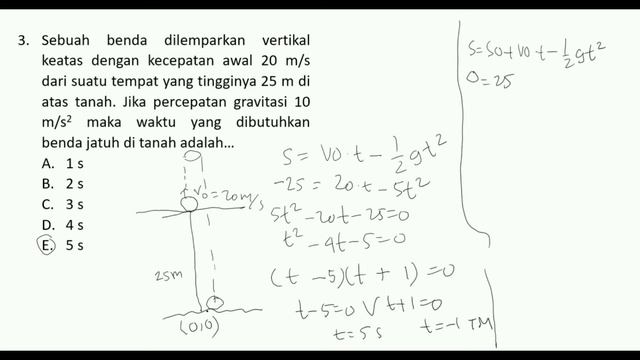 3. Sebuah benda dilemparkan vertikal
keatas dengan kecepatan awal 20 m/s
dari suatu tempat yang tingginya 25 m di
atas tanah. Jika percepatan gravitasi 10
m/s² maka waktu yang dibutuhkan
benda jatuh di tanah adalah...
A. 1 s
B. 2 s
C. 3 s
D. 4 s
E. 5 s
V₀ = 20 m/s
25m
(0,0)
S = V0·t - 1/2 gt²
-25 = 20·t - 5t²
5t² - 20t - 25 = 0
t² - 4t - 5 = 0
(t - 5)(t + 1) = 0
t - 5 = 0 V t + 1 = 0
t = 5 s t = -1 TM
S = S0 + V0 t - 1/2 gt²
0 = 25